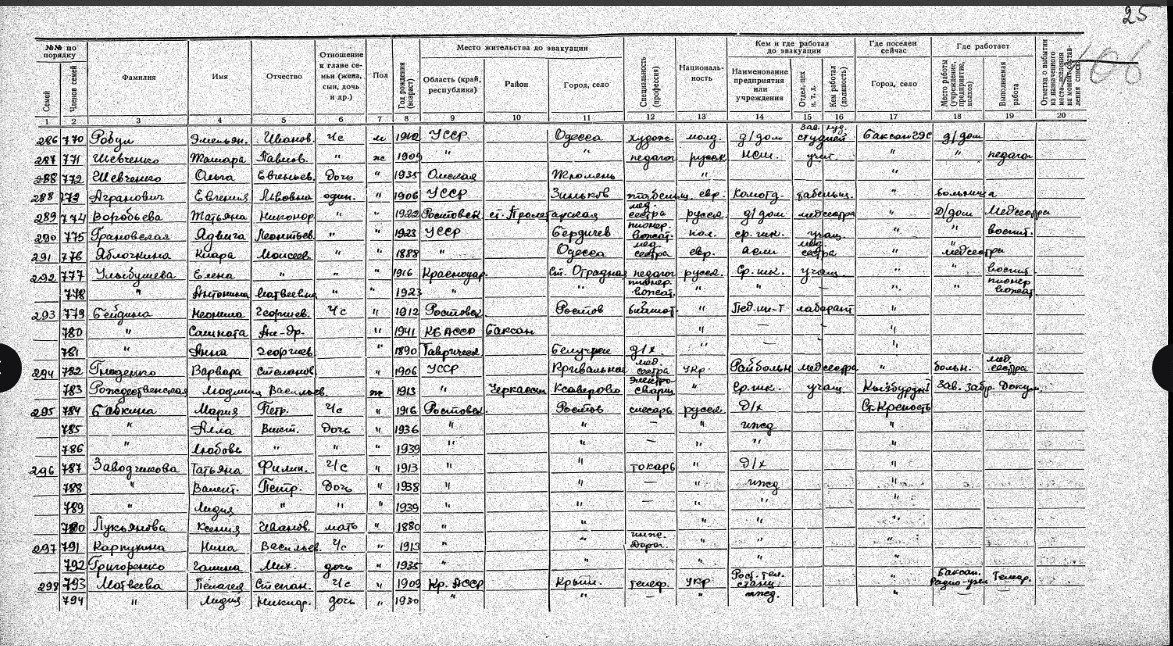 25
106
№№ по порядку
Семей
Членов семей
Фамилия
Имя
Отчество
Отношение к главе семьи (жена, сын, дочь и др.)
Пол
Год рождения (возраст)
Место жительства до эвакуации
Область (край, республика)
Район
Город, село
Специальность (профессия)
Национальность
Кем и где работал до эвакуации
Наименование предприятия или учреждения
Отдел, цех и т. д.
Кем работал (должность)
Где поселен сейчас
Город, село
Где работает
Место работы (учреждение, предприятие, колхоз)
Выполняемая работа
1 2 3 4 5 6 7 8 9 10 11 12 13 14 15 16 17 18 19 20
286 770 Робул Эмельян. Иванов. Ч/с м УССР Одесса худож. молд. д/дом зав. худ. студией Баксан ГЭС д/дом
287 771 Шевченко Тамара Павлов. " ж 1909 " " педагог русск нсш. учит. " " педагог
288 772 Шевченко Ольга Евгеньев. Дочь " 1935 Омская Тюмень " "
288 773 Агранович Евгения Львовна один. " 1906 УССР Зиньков евр. " больница
289 774 Воробьева Татьяна Никонор. " " 1922 Ростовск ст. Пролетарская мед. сестра русск д/дом медсестра " Д/дом Медсестра
290 775 Грановская Ядвига Леонтьев. " " 1923 УССР Бердичев пионер. вожат. пол. ср. шк. учащ. " " воспит.
291 776 Яблочкина Клара Моисеев. " " 1888 " Одесса мед. сестра евр. мед. сестра " медсестра
292 777 Улыбушева Елена " " " 1916 Краснодар. ст. Отрадная педагог русск. Ср. шк. учащ. " " воспит
778 " Антонина Матвеевна " 1923 " " пионер. вожат. " " — " пионер вожат
293 779 Бейдина Неонила Георгиев. Ч/с " 1912 Ростовск Ростов библиот. " Пед. ин-т лаборант "
780 " Ал-др. " 1941 КБАССР Баксан " — "
781 " Анна Георгиев " 1890 Таврическ д/х " — "
294 782 Гноденко Варвара Степанов. " 1906 УССР мед. сестра укр. Райбольн медсестра " больн. мед. сестра
783 Рождественская Людмила Васильев. ж 1913 " Черкассы Ксаверово электросварщ " Ср. шк. учащ. Кызбурун I Зав. Забр. Докум.
295 784 Бабкина Мария Петр. Ч/с " 1916 Ростовск. Ростов слесарь русск. Д/х Ст. Крепость
785 " Алла Викт. Дочь " 1936 " " — " ижд "
786 " Любовь " " " 1939 " " — " " "
296 787 Заводчикова Татьяна Филип. Ч/с " 1913 " " токарь " Д/х "
788 " Валент. Петр. Дочь " 1938 " " — " ижд "
789 " Лидия " " " 1939 " " — " " "
790 Лукьянова Ксения Иванов. мать " 1880 " " " " "
297 791 Карпухина Нина Васильев. Ч/с " 1913 " " " " "
792 Григоренко Галина Мих. дочь " 1935 " " " " "
298 793 Матвеева Пелагея Степан. Ч/с " 1909 Кр. АССР Крым. телеф. укр Рост. тел. станц. " Баксан. Радио-узел Телеф.
794 " Лидия Никанор. дочь " 1930 " " — " ижд. " — —